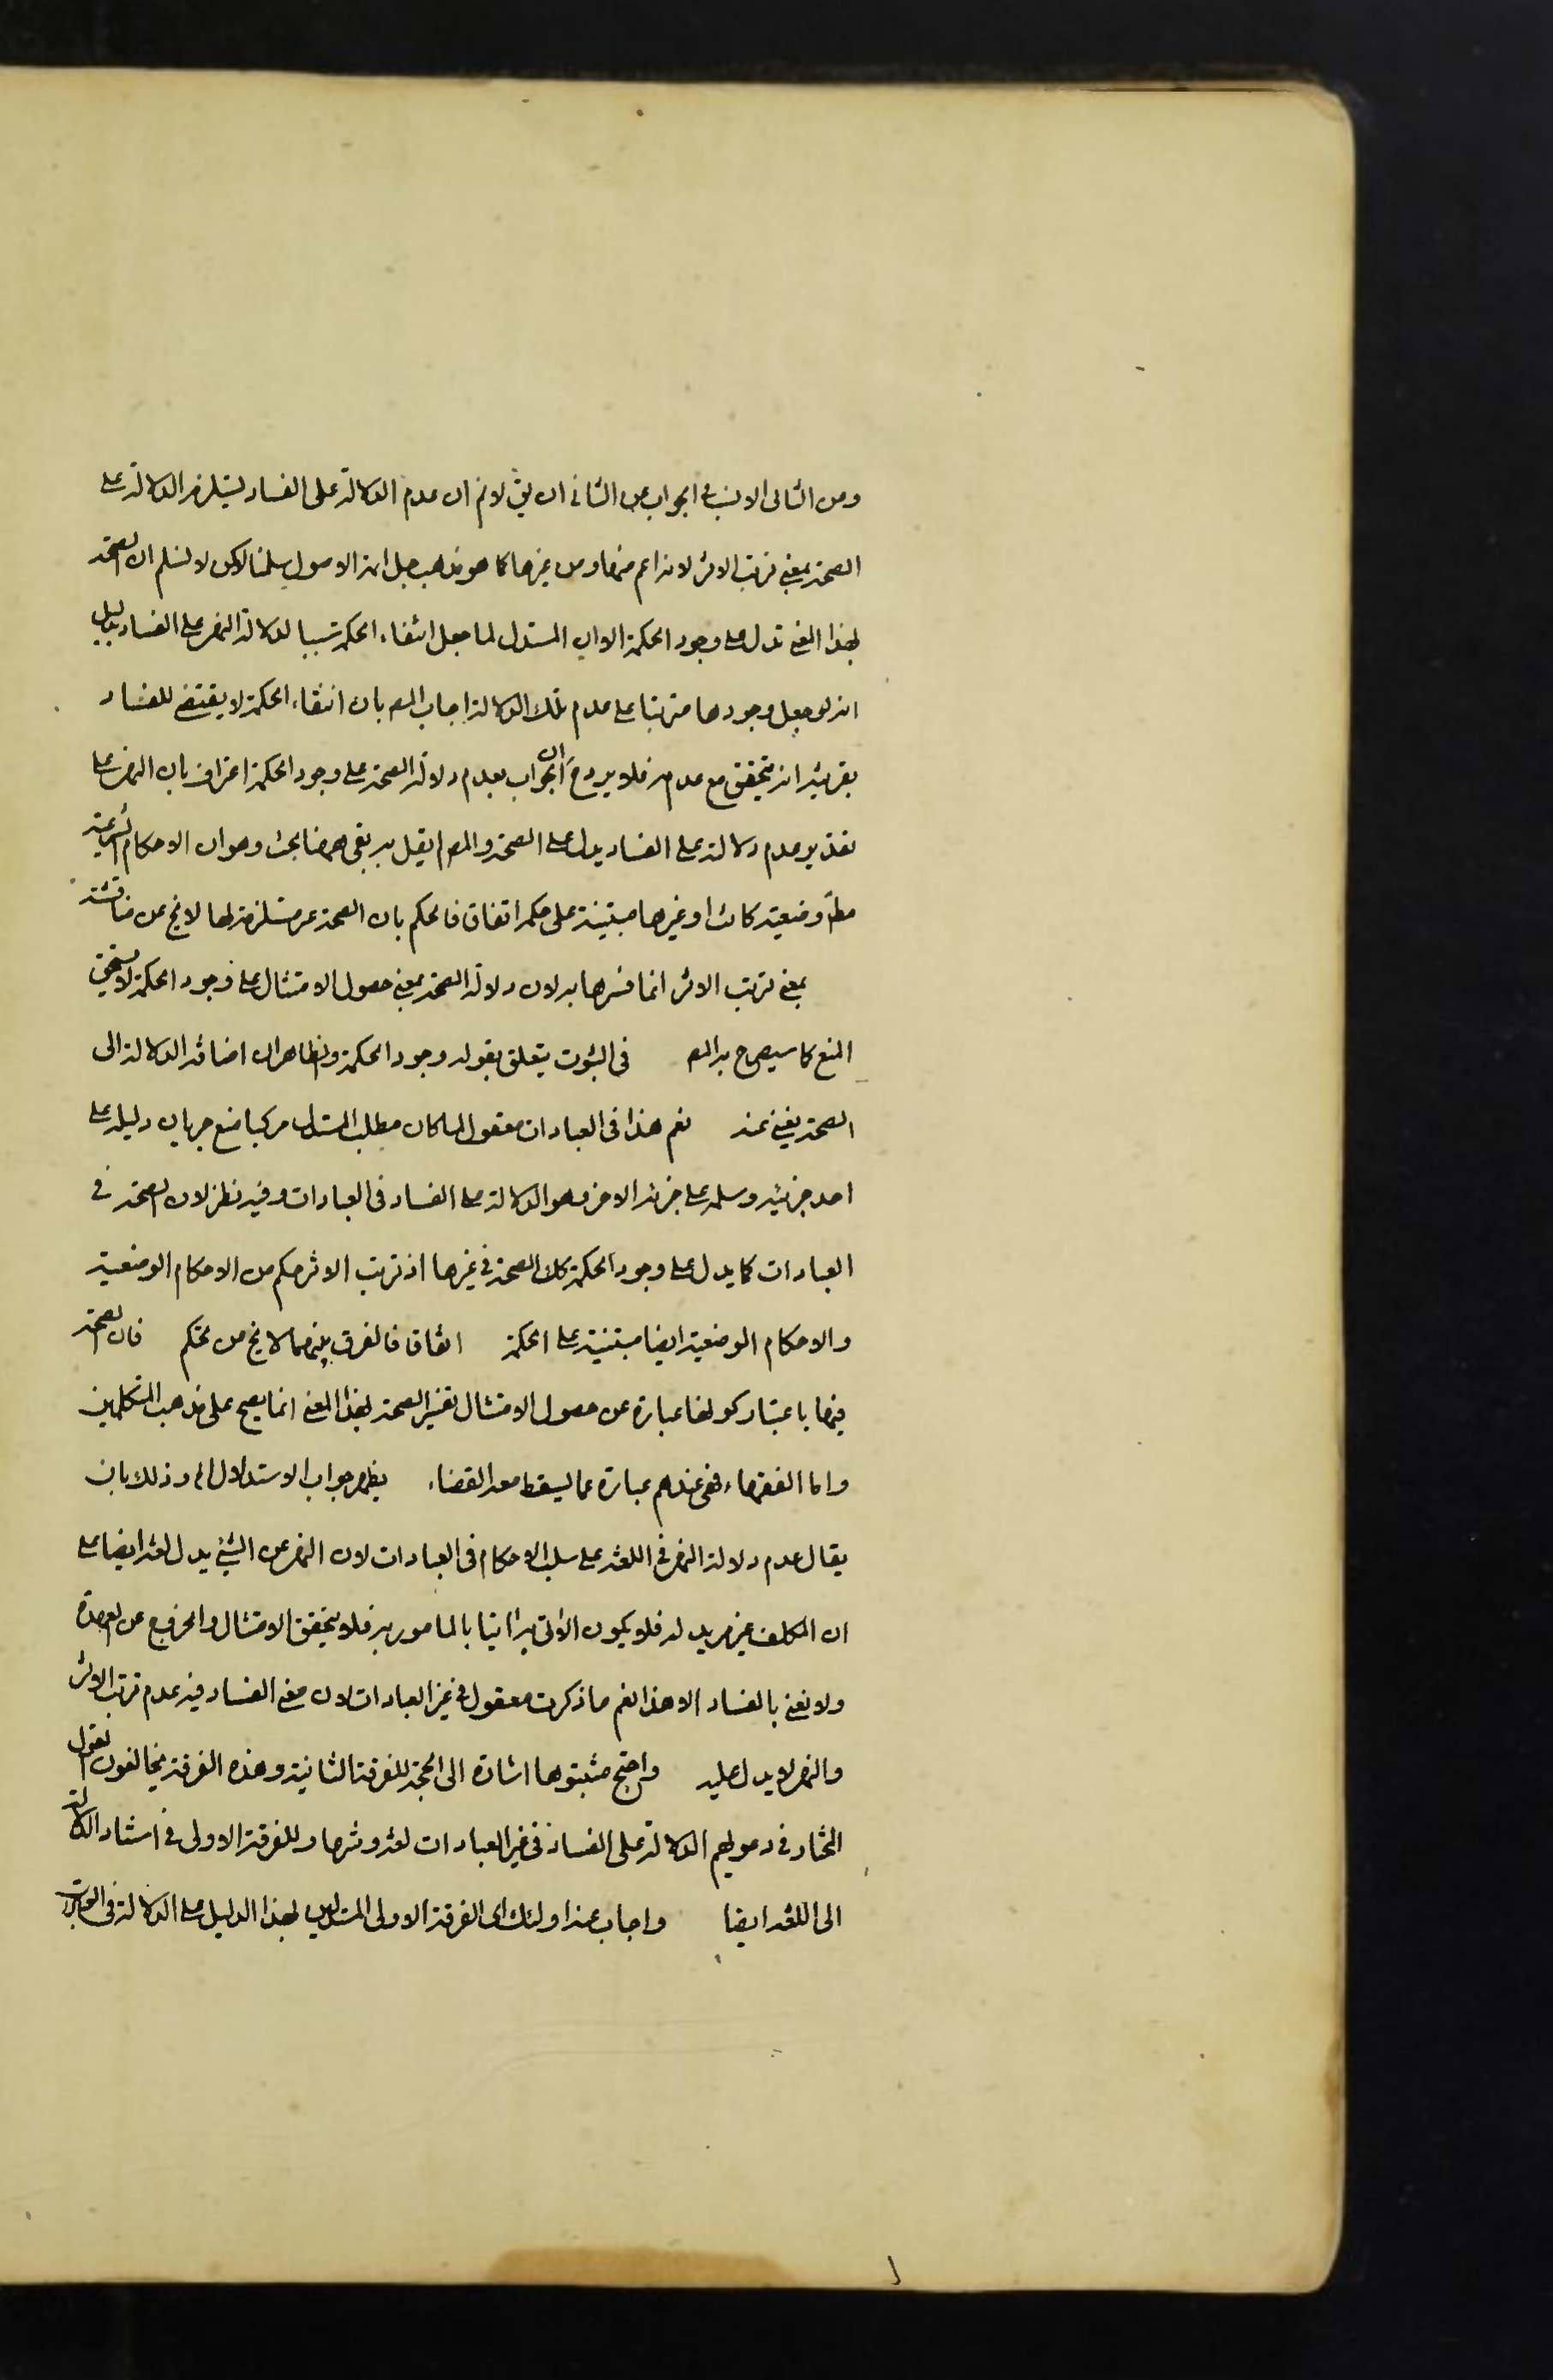 ومن الثاني الانسب في الجواب عن الثاني ان يق لا نم ان عدم الدلالة على الفساد يستلزم الدلالة على
الصحة بمعنى ترتب الاثر لانه اعم منها ومن غيرها كما هو مذهب جل ائمة الاصول سلمنا لكن لا نسلم ان الصحة
بهذا المعنى تدل على وجود الحكمة الا ان المستدل لما جعل انتفاء الحكمة سببا لدلالة النهي على الفساد بدليل
انه لو جعل وجودها مترتبا على عدم تلك الدلالة اجاب المص بان انتفاء الحكمة لا يقتضي للفساد
بقرينة انه يتحقق مع عدمه فلا يرد ح ان الجواب بعدم دلالة الصحة على وجود الحكمة اعتراف بان النهي على
تقدير عدم دلالته على الفساد يدل على الصحة والمص لم يقل به بقي ههنا بحث وهو ان الاحكام الشرعية
مطلقا وضعية كانت او غيرها مبتنية على حكم اتفاقا فالحكم بان الصحة غير مستلزمة لها لا يخ عن مناقشة
بمعنى ترتب الاثر انما فسرها به لان دلالة الصحة بمعنى حصول الامتثال على وجود الحكمة لا يستحق
المنع كما سيصرح به المص في الثبوت يتعلق بقوله وجود الحكمة والظاهر ان اضافة الدلالة الى
الصحة يغني عنه نعم هذا في العبادات معقول لما كان مطلب المستدل مركبا منع جريان دليله على
احد جزئيه وسلمه على جزئه الاخر وهو الدلالة على الفساد في العبادات وفيه نظر لان الصحة في
العبادات كما يدل على وجود الحكمة كك الصحة في غيرها اذ ترتب الاثر حكم من الاحكام الوضعية
والاحكام الوضعية ايضا مبتنية على الحكمة اتفاقا فالفرق بينهما لا يخ من تحكم فان الصحة
فيها باعتبار كونها عبارة عن حصول الامتثال تفسير الصحة بهذا المعنى انما يصح على مذهب المتكلمين
واما الفقهاء فهي عندهم عبارة عما يسقط معه القضاء يظهر جواب الاستدلال اه وذلك بان
يقال عدم دلالة النهي في اللغة على سلب الاحكام في العبادات لان النهي عن الشيء يدل لغة ايضا على
ان المكلف غير مريد له فلا يكون الاتي به اتيا بالمامور به فلا يتحقق الامتثال والخروج عن العهدة
ولا نعني بالفساد الا هذا نعم ما ذكرت معقول في غير العبادات لان معنى الفساد فيه عدم ترتب الاثر
والنهي لا يدل عليه واحتج مثبتوها اشارة الى الحجة للفرقة الثانية وهذه الفرقة يخالفون القول
المختار في دعويهم الدلالة على الفساد في غير العبادات لغة وشرعا وللفرقة الاولى في استناد الدلالة
الى اللغة ايضا واجاب عنه اولئك اى الفرقة الاولى المستدلين بهذا الدليل على الدلالة في العبادات